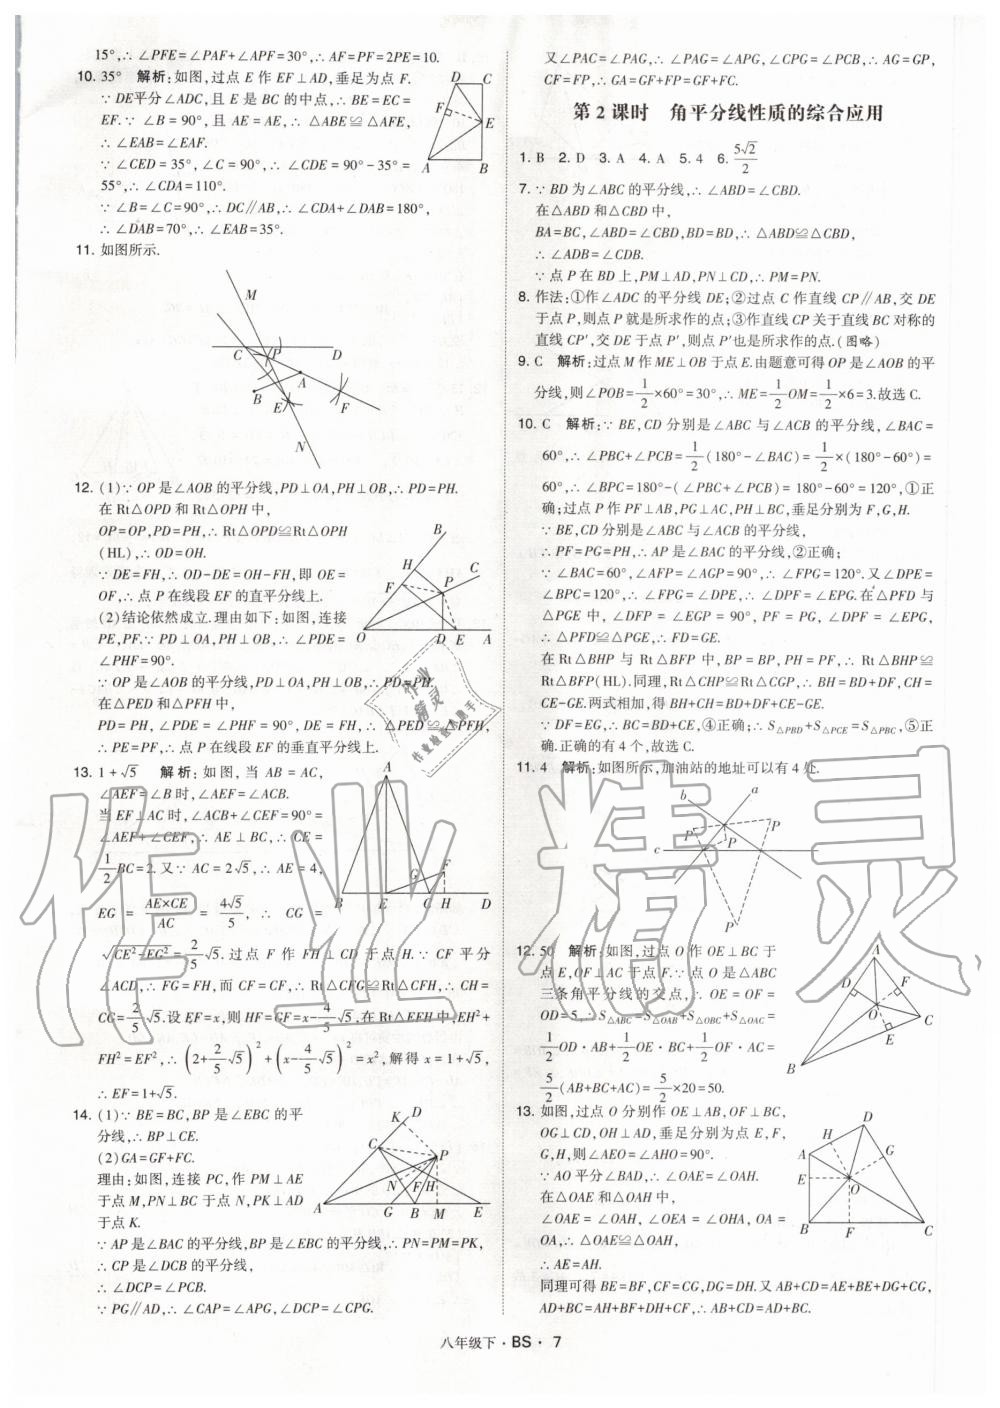 15°,∴ ∠PFE=∠PAF+∠APF=30°,∴ AF=PF=2PE=10.
10. 35° 解析:如图,过点 E 作 EF⊥AD,垂足为点 F.
∵ DE平分∠ADC,且 E 是 BC 的中点,∴ BE=EC=
EF.∵ ∠B=90°,且 AE=AE,∴ △ABE≌△AFE,
∴ ∠EAB=∠EAF.
∵ ∠CED=35°,∠C=90°,∴ ∠CDE=90°-35°=
55°,∴ ∠CDA=110°.
∵ ∠B=∠C=90°,∴ DC∥AB,∴ ∠CDA+∠DAB=180°,
∴ ∠DAB=70°,∴ ∠EAB=35°.
D C
F
E
A B
11. 如图所示.
M
C P D
A
B E F
N
12. (1)∵ OP 是∠AOB 的平分线,PD⊥OA,PH⊥OB,∴ PD=PH.
在 Rt△OPD 和 Rt△OPH 中,
OP=OP,PD=PH,∴ Rt△OPD≌Rt△OPH
(HL),∴ OD=OH.
∵ DE=FH,∴ OD-DE=OH-FH,即 OE=
OF,∴ 点 P 在线段 EF 的垂直平分线上.
(2)结论依然成立.理由如下:如图,连接
PE,PF.∵ PD⊥OA,PH⊥OB,∴ ∠PDE=
∠PHF=90°.
∵ OP 是∠AOB 的平分线,PD⊥OA,PH⊥OB,∴ PD=PH.
在△PED 和△PFH 中,
PD=PH,∠PDE=∠PHF=90°,DE=HF,∴ △PED≌△PFH,
∴ PE=PF,∴ 点 P 在线段 EF 的垂直平分线上.
B
H C
F P
O D E A
13. 1+√5 解析:如图,当 AB=AC,
∠AEF=∠B 时,∠AEF=∠ACB.
当 EF⊥AC 时,∠ACB+∠CEF=90°=
∠AEF+∠CEF,∴ AE⊥BC,∴ CE=
1/2 BC=2.又∵ AC=2√5,∴ AE=4,
EG=AE×CE/AC=4√5/5,∴ CG=
√(CE²-EG²)=2/5√5.过点 F 作 FH⊥CD 于点 H.∵ CF 平分
∠ACD,∴ FG=FH,而 CF=CF,∴ Rt△CFG≌Rt△CFH,∴ CH=
CG=2/5√5.设 EF=x,则 HF=GF=x-4/5√5,在 Rt△EFH 中,EH²+
FH²=EF²,∴ (2+2/5√5)²+(x-4/5√5)²=x²,解得 x=1+√5,
∴ EF=1+√5.
A
G F
B E C H D
14. (1)∵ BE=BC,BP 是∠EBC 的平
分线,∴ BP⊥CE.
(2)GA=GF+FC.
理由:如图,连接 PC,作 PM⊥AE
于点 M,PN⊥BC 于点 N,PK⊥AD
于点 K.
∵ AP 是∠BAC 的平分线,BP 是∠EBC 的平分线,∴ PN=PM=PK,
∴ CP 是∠DCB 的平分线,
∴ ∠DCP=∠PCB.
∵ PG∥AD,∴ ∠CAP=∠APG,∠DCP=∠CPG.
K D
C P
N F H
A G B M E
又∠PAC=∠PAG,∴ ∠PAG=∠APG,∠CPG=∠PCB,∴ AG=GP,
CF=FP,∴ GA=GF+FP=GF+FC.
第 2 课时 角平分线性质的综合应用
1. B 2. D 3. A 4. A 5. 4 6. 5√2/2
7. ∵ BD 为∠ABC 的平分线,∴ ∠ABD=∠CBD.
在△ABD 和△CBD 中,
BA=BC,∠ABD=∠CBD,BD=BD,∴ △ABD≌△CBD,
∴ ∠ADB=∠CDB.
∵ 点 P 在 BD 上,PM⊥AD,PN⊥CD,∴ PM=PN.
8. 作法:①作∠ADC 的平分线 DE;②过点 C 作直线 CP∥AB,交 DE
于点 P,则点 P 就是所求作的点;③作直线 CP 关于直线 BC 对称的
直线 CP′,交 DE 于点 P′,则点 P′也是所求作的点.(图略)
9. C 解析:过点 M 作 ME⊥OB 于点 E.由题意可得 OP 是∠AOB 的平
分线,则∠POB=1/2×60°=30°,∴ ME=1/2OM=1/2×6=3.故选 C.
10. C 解析:∵ BE,CD 分别是∠ABC 与∠ACB 的平分线,∠BAC=
60°,∴ ∠PBC+∠PCB=1/2(180°-∠BAC)=1/2×(180°-60°)=
60°,∴ ∠BPC=180°-(∠PBC+∠PCB)=180°-60°=120°,①正
确;过点 P 作 PF⊥AB,PG⊥AC,PH⊥BC,垂足分别为 F,G,H.
∵ BE,CD 分别是∠ABC 与∠ACB 的平分线,
∴ PF=PG=PH,∴ AP 是∠BAC 的平分线,②正确;
∵ ∠BAC=60°,∠AFP=∠AGP=90°,∴ ∠FPG=120°.又∠DPE=
∠BPC=120°,∴ ∠FPG=∠DPE,∴ ∠DPF=∠EPG.在△PFD 与
△PGE 中,∠DFP=∠EGP=90°,PF=PG,∠DPF=∠EPG,
∴ △PFD≌△PGE,∴ FD=GE.
在 Rt△BHP 与 Rt△BFP 中,BP=BP,PH=PF,∴ Rt△BHP≌
Rt△BFP(HL).同理,Rt△CHP≌Rt△CGP,∴ BH=BD+DF,CH=
CE-GE.两式相加,得 BH+CH=BD+DF+CE-GE.
∵ DF=EG,∴ BC=BD+CE,④正确;∴ S△PBD+S△PCE=S△PBC,⑤正
确.正确的有 4 个,故选 C.
11. 4 解析:如图所示,加油站的地址可以有 4 处.
b a
P P
c P
P
12. 50 解析:如图,过点 O 作 OE⊥BC 于
点 E,OF⊥AC 于点 F.∵ 点 O 是△ABC
三条角平分线的交点,∴ OE=OF=
OD=5,∴ S△ABC=S△OAB+S△OBC+S△OAC=
1/2OD·AB+1/2OE·BC+1/2OF·AC=
5/2(AB+BC+AC)=5/2×20=50.
A
D F
O C
E
B
13. 如图,过点 O 分别作 OE⊥AB,OF⊥BC,
OG⊥CD,OH⊥AD,垂足分别为点 E,F,
G,H,则∠AEO=∠AHO=90°.
∵ AO 平分∠BAD,∴ ∠OAE=∠OAH.
在△OAE 和△OAH 中,
∠OAE=∠OAH,∠OEA=∠OHA,OA=
OA,∴ △OAE≌△OAH,
∴ AE=AH.
同理可得 BE=BF,CF=CG,DG=DH.又 AB+CD=AE+BE+DG+CG,
AD+BC=AH+BF+DH+CF,∴ AB+CD=AD+BC.
D
H
A G
E O
B F C
八年级下·BS·7
作业精灵
作业精灵